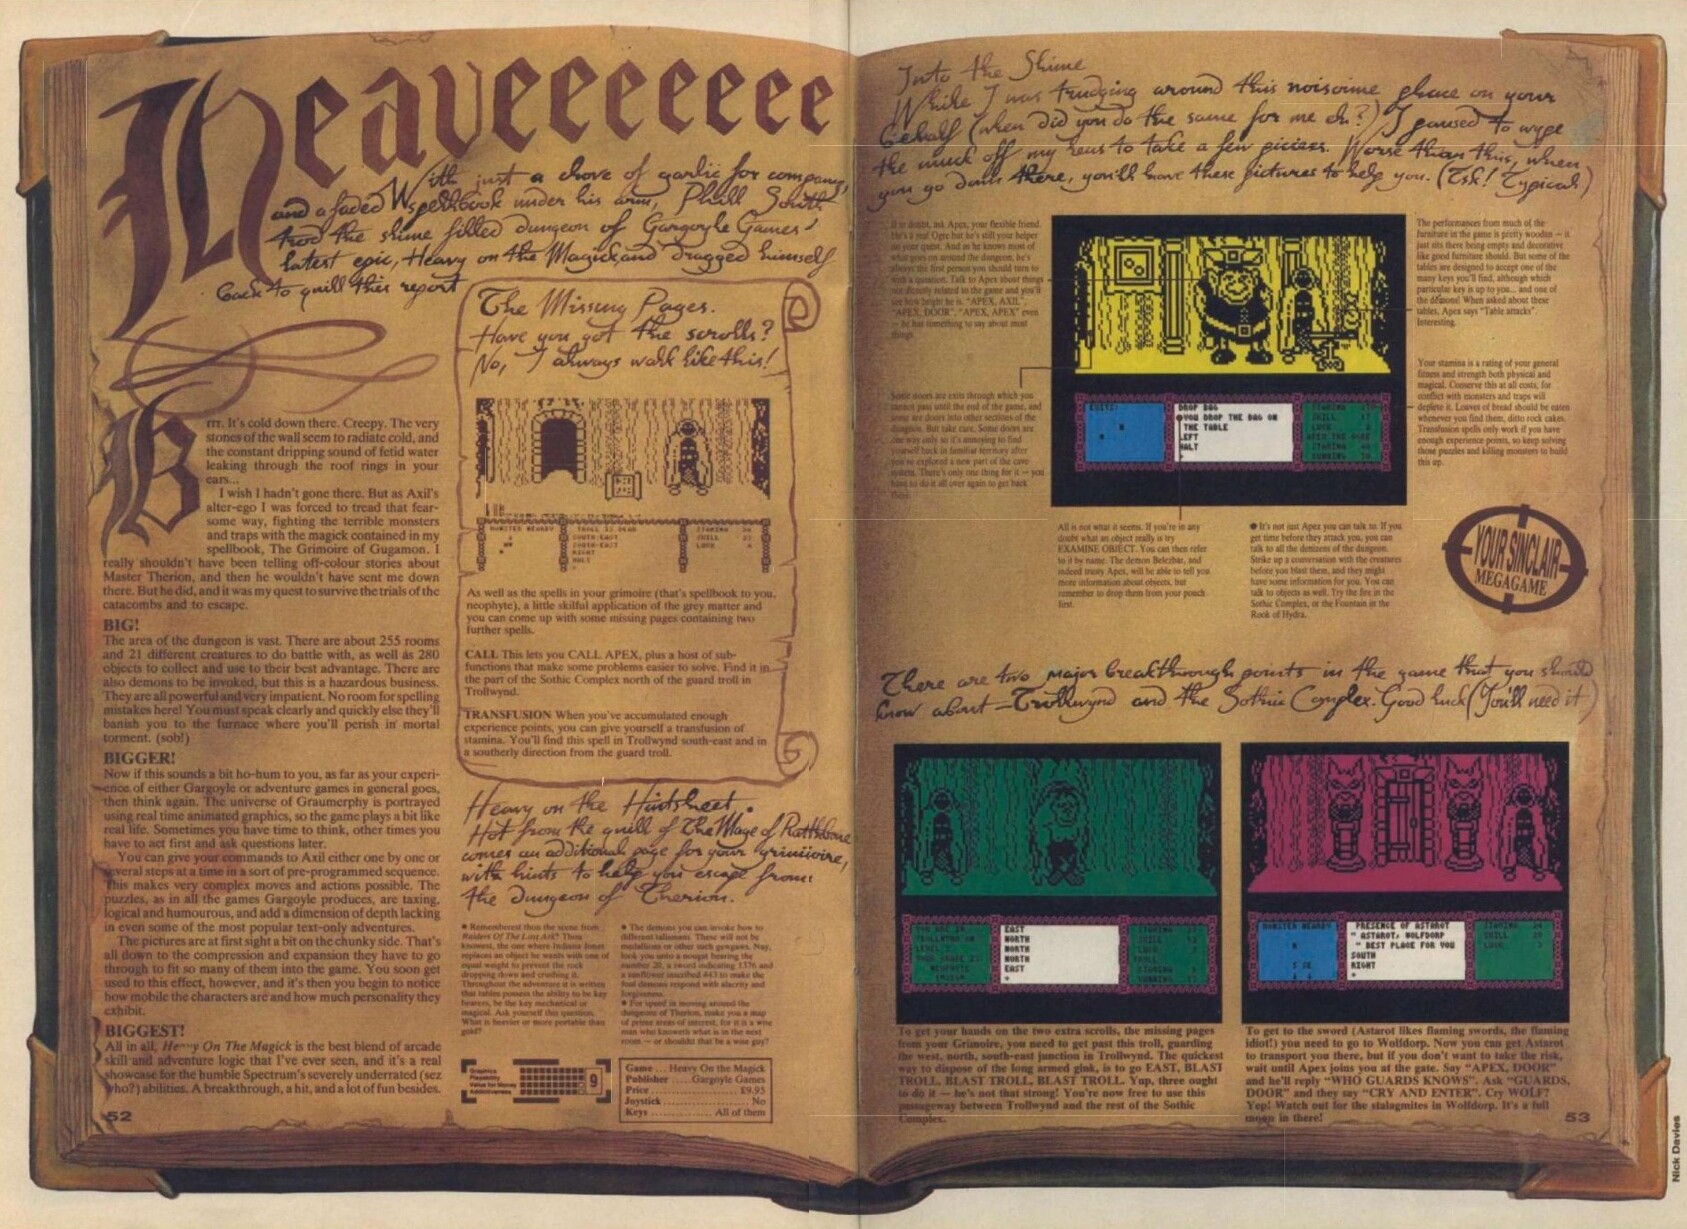 Heaveeeeeeee
With just a clove of garlic for company,
and a faded spellbook under his arm, Phill South
trod the slime filled dungeon of Gargoyle Games'
latest epic, Heavy on the Magick, and dragged himself
back to quill this report
Brrr. It's cold down there. Creepy. The very
stones of the wall seem to radiate cold, and
the constant dripping sound of fetid water
leaking through the roof rings in your
ears...
I wish I hadn't gone there. But as Axil's
alter-ego I was forced to tread that fear-
some way, fighting the terrible monsters
and traps with the magick contained in my
spellbook, The Grimoire of Gugamon. I
really shouldn't have been telling off-colour stories about
Master Therion, and then he wouldn't have sent me down
there. But he did, and it was my quest to survive the trials of the
catacombs and to escape.
BIG!
The area of the dungeon is vast. There are about 255 rooms
and 21 different creatures to do battle with, as well as 280
objects to collect and use to their best advantage. There are
also demons to be invoked, but this is a hazardous business.
They are all powerful and very impatient. No room for spelling
mistakes here! You must speak clearly and quickly else they'll
banish you to the furnace where you'll perish in mortal
torment. (sob!)
BIGGER!
Now if this sounds a bit ho-hum to you, as far as your experi-
ence of either Gargoyle or adventure games in general goes,
then think again. The universe of Graumerphy is portrayed
using real time animated graphics, so the game plays a bit like
real life. Sometimes you have time to think, other times you
have to act first and ask questions later.
You can give your commands to Axil either one by one or
several steps at a time in a sort of pre-programmed sequence.
This makes very complex moves and actions possible. The
puzzles, as in all the games Gargoyle produces, are taxing,
logical and humourous, and add a dimension of depth lacking
in even some of the most popular text-only adventures.
The pictures are at first sight a bit on the chunky side. That's
all down to the compression and expansion they have to go
through to fit so many of them into the game. You soon get
used to this effect, however, and it's then you begin to notice
how mobile the characters are and how much personality they
exhibit.
BIGGEST!
All in all, Heavy On The Magick is the best blend of arcade
skill and adventure logic that I've ever seen, and it's a real
showcase for the humble Spectrum's severely underrated (sez
who?) abilities. A breakthrough, a hit, and a lot of fun besides.
52
The Missing Pages.
Have you got the scrolls?
No, I always walk like this!
MONSTER NEARBY
TABLE IS DEAD
SOUTH-EAST
SOUTH-EAST
RIGHT
HALT
STAMINA
SKILL
LUCK
As well as the spells in your grimoire (that's spellbook to you,
neophyte), a little skilful application of the grey matter and
you can come up with some missing pages containing two
further spells.
CALL This lets you CALL APEX, plus a host of sub-
functions that make some problems easier to solve. Find it in
the part of the Sothic Complex north of the guard troll in
Trollwynd.
TRANSFUSION When you've accumulated enough
experience points, you can give yourself a transfusion of
stamina. You'll find this spell in Trollwynd south-east and in
a southerly direction from the guard troll.
Heavy on the Hintsheet.
Hot from the quill of The Mage of Rathbone
comes an additional page for your grimoire,
with hints to help you escape from
the Dungeon of Therion.
● Rememberest thou the scene from
Raiders Of The Lost Ark? Thou
knowest, the one where Indiana Jones
replaces an object he wants with one of
equal weight to prevent the rock
dropping down and crushing it.
Throughout the adventure it is written
that tables possess the ability to be key
bearers, be the key mechanical or
magical. Ask yourself this question.
What is heavier or more portable than
gold?
● The demons you can invoke bow to
different talismans. These will not by
medallions or other such gewgaws. Nay,
look you unto a nougat bearing the
number 20, a sword indicating 1376 and
a sunflower inscribed 443 to make the
foul demons respond with alacrity and
forgiveness.
● For speed in moving around the
dungeons of Therion, make you a map
of prime areas of interest, for it is a wise
man who knoweth what is in the next
room — or shouldst that be a wise guy?
Graphics
Playability
Value for Money
Addictiveness
9
Game ... Heavy On The Magick
Publisher ..... Gargoyle Games
Price ..... £9.95
Joystick ..... No
Keys ..... All of them
Into the Slime
While I was trudging around this noisome place on your
behalf (when did you do the same for me eh?) I paused to wype
the muck off my lens to take a few piccies. Worse than this, when
you go down there, you'll have these pictures to help you. (Tsk! Typical)
If in doubt, ask Apex, your flexible friend.
He's a real Ogre but he's still your helper
on your quest. And as he knows most of
what goes on around the dungeon, he's
always the first person you should turn to
with a question. Talk to Apex about things
not directly related to the game and you'll
see how bright he is. "APEX, AXIL",
"APEX, DOOR", "APEX, APEX" even
— he has something to say about most
things.
Some doors are exits through which you
cannot pass until the end of the game, and
some are doors into other sections of the
dungeon. But take care. Some doors are
one way only so it's annoying to find
yourself back in familiar territory after
you've explored a new part of the cave
system. There's only one thing for it — you
have to do it all over again to get back
there.
EXITS:
DROP BAG
YOU DROP THE BAG ON
THE TABLE
LEFT
HALT
STAMINA
SKILL
LUCK
APEX THE OGRE
STAMINA
The performances from much of the
furniture in the game is pretty wooden — it
just sits there being empty and decorative
like good furniture should. But some of the
tables are designed to accept one of the
many keys you'll find, although which
particular key is up to you... and one of
the demons! When asked about these
tables, Apex says "Table attacks".
Interesting.
Your stamina is a rating of your general
fitness and strength both physical and
magical. Conserve this at all costs, for
conflict with monsters and traps will
deplete it. Loaves of bread should be eaten
whenever you find them, ditto rock cakes.
Transfusion spells only work if you have
enough experience points, so keep solving
those puzzles and killing monsters to build
this up.
All is not what it seems. If you're in any
doubt what an object really is try
EXAMINE OBJECT. You can then refer
to it by name. The demon Belezbar, and
indeed trusty Apex, will be able to tell you
more information about objects, but
remember to drop them from your pouch
first.
● It's not just Apex you can talk to. If you
get time before they attack you, you can
talk to all the denizens of the dungeon.
Strike up a conversation with the creatures
before you blast them, and they might
have some information for you. You can
talk to objects as well. Try the fire in the
Sothic Complex, or the Fountain in the
Rock of Hydra.
YOUR SINCLAIR
MEGAGAME
There are two major breakthrough points in the game that you should
know about — Trollwynd and the Sothic Complex. Good luck (You'll need it)
YOU ARE IN
TROLLWYND ON
LEVEL
YOUR GRADE IS
NEOPHYTE
EAST
NORTH
NORTH
NORTH
EAST
STAMINA
SKILL
LUCK
TROLL
STAMINA
MONSTER NEARBY
PRESENCE OF ASTAROT
" ASTAROT, WOLFDORP
" BEST PLACE FOR YOU
SOUTH
RIGHT
STAMINA
SKILL
LUCK
To get your hands on the two extra scrolls, the missing pages
from your Grimoire, you need to get past this troll, guarding
the west, north, south-east junction in Trollwynd. The quickest
way to dispose of the long armed gink, is to go EAST, BLAST
TROLL, BLAST TROLL, BLAST TROLL. Yup, three ought
to do it — he's not that strong! You're now free to use this
passageway between Trollwynd and the rest of the Sothic
Complex.
To get to the sword (Astarot likes flaming swords, the flaming
idiot!) you need to go to Wolfdorp. Now you can get Astarot
to transport you there, but if you don't want to take the risk,
wait until Apex joins you at the gate. Say "APEX, DOOR"
and he'll reply "WHO GUARDS KNOWS". Ask "GUARDS,
DOOR" and they say "CRY AND ENTER". Cry WOLF?
Yep! Watch out for the stalagmites in Wolfdorp. It's a full
moon in there!
53
Nick Davies